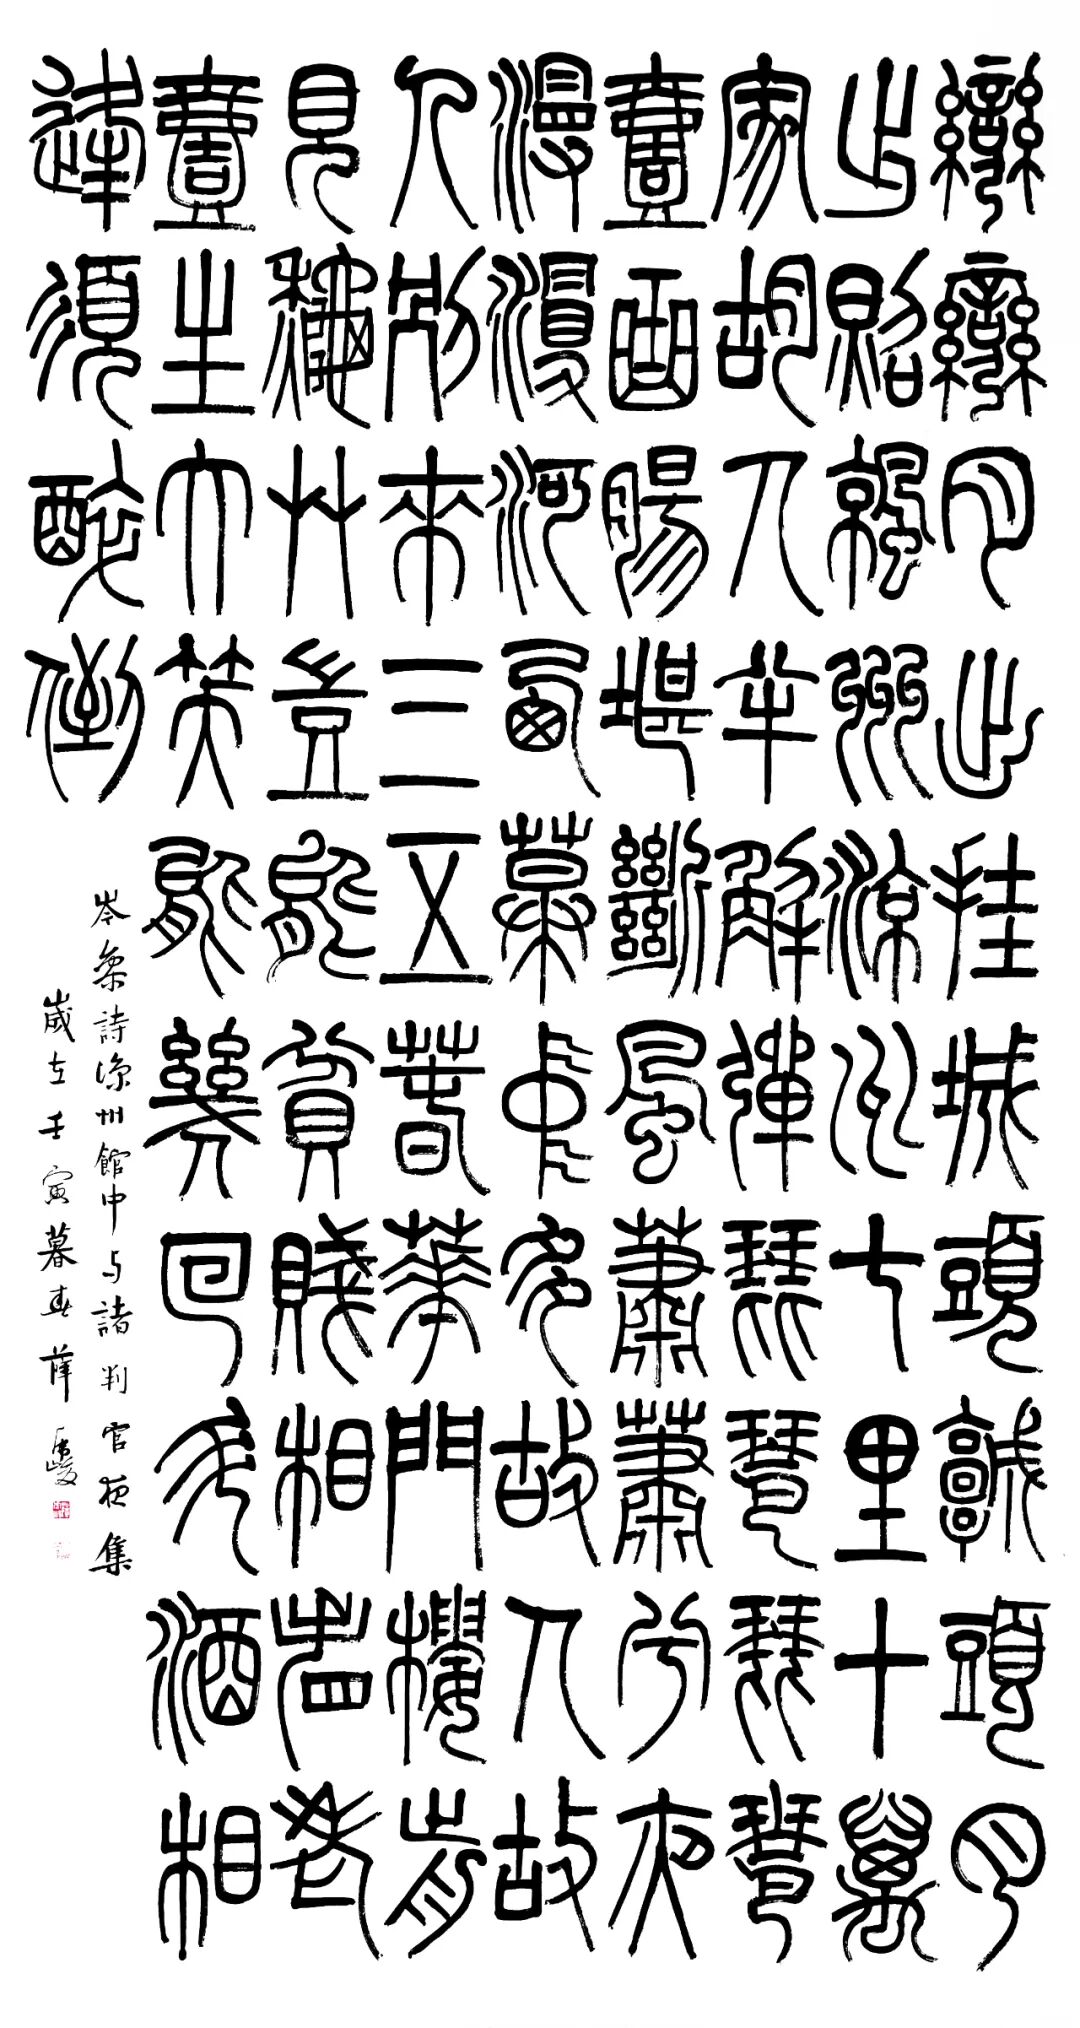 彎彎月出挂城頭城頭月
出照涼州涼州七里十萬
家胡人半解彈琵琶琵琶
壹曲腸堪斷風蕭蕭兮夜
漫漫河西幕中多故人故
人別來三五春華門樓前
見龝艸豈能貧賤相看老
壹生大笑能幾回斗酒相
逢須醉倒
岑參詩涼州館中与諸判官夜集
歲在壬寅暮春薛